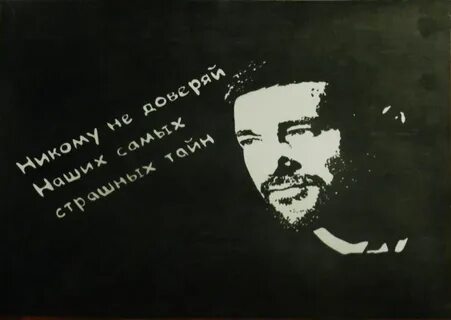 Никому не доверяй
Наших самых
страшных тайн